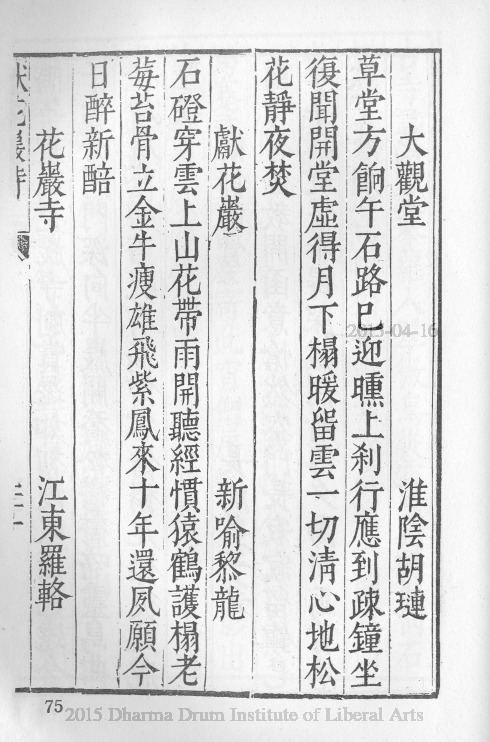 大觀堂 淮陰胡璉
草堂方餉午石路已迎曛上刹行應到疎鐘坐
復聞開堂虛得月下榻暖留雲一切清心地松
花靜夜焚
獻花巖 新喻黎龍
石磴穿雲上山花帶雨開聽經慣猿鶴護榻老
莓苔骨立金牛瘦雄飛紫鳳來十年還夙願今
日醉新醅
花巖寺 江東羅輅
獻花巖寺
75
2015-04-16
2015 Dharma Drum Institute of Liberal Arts